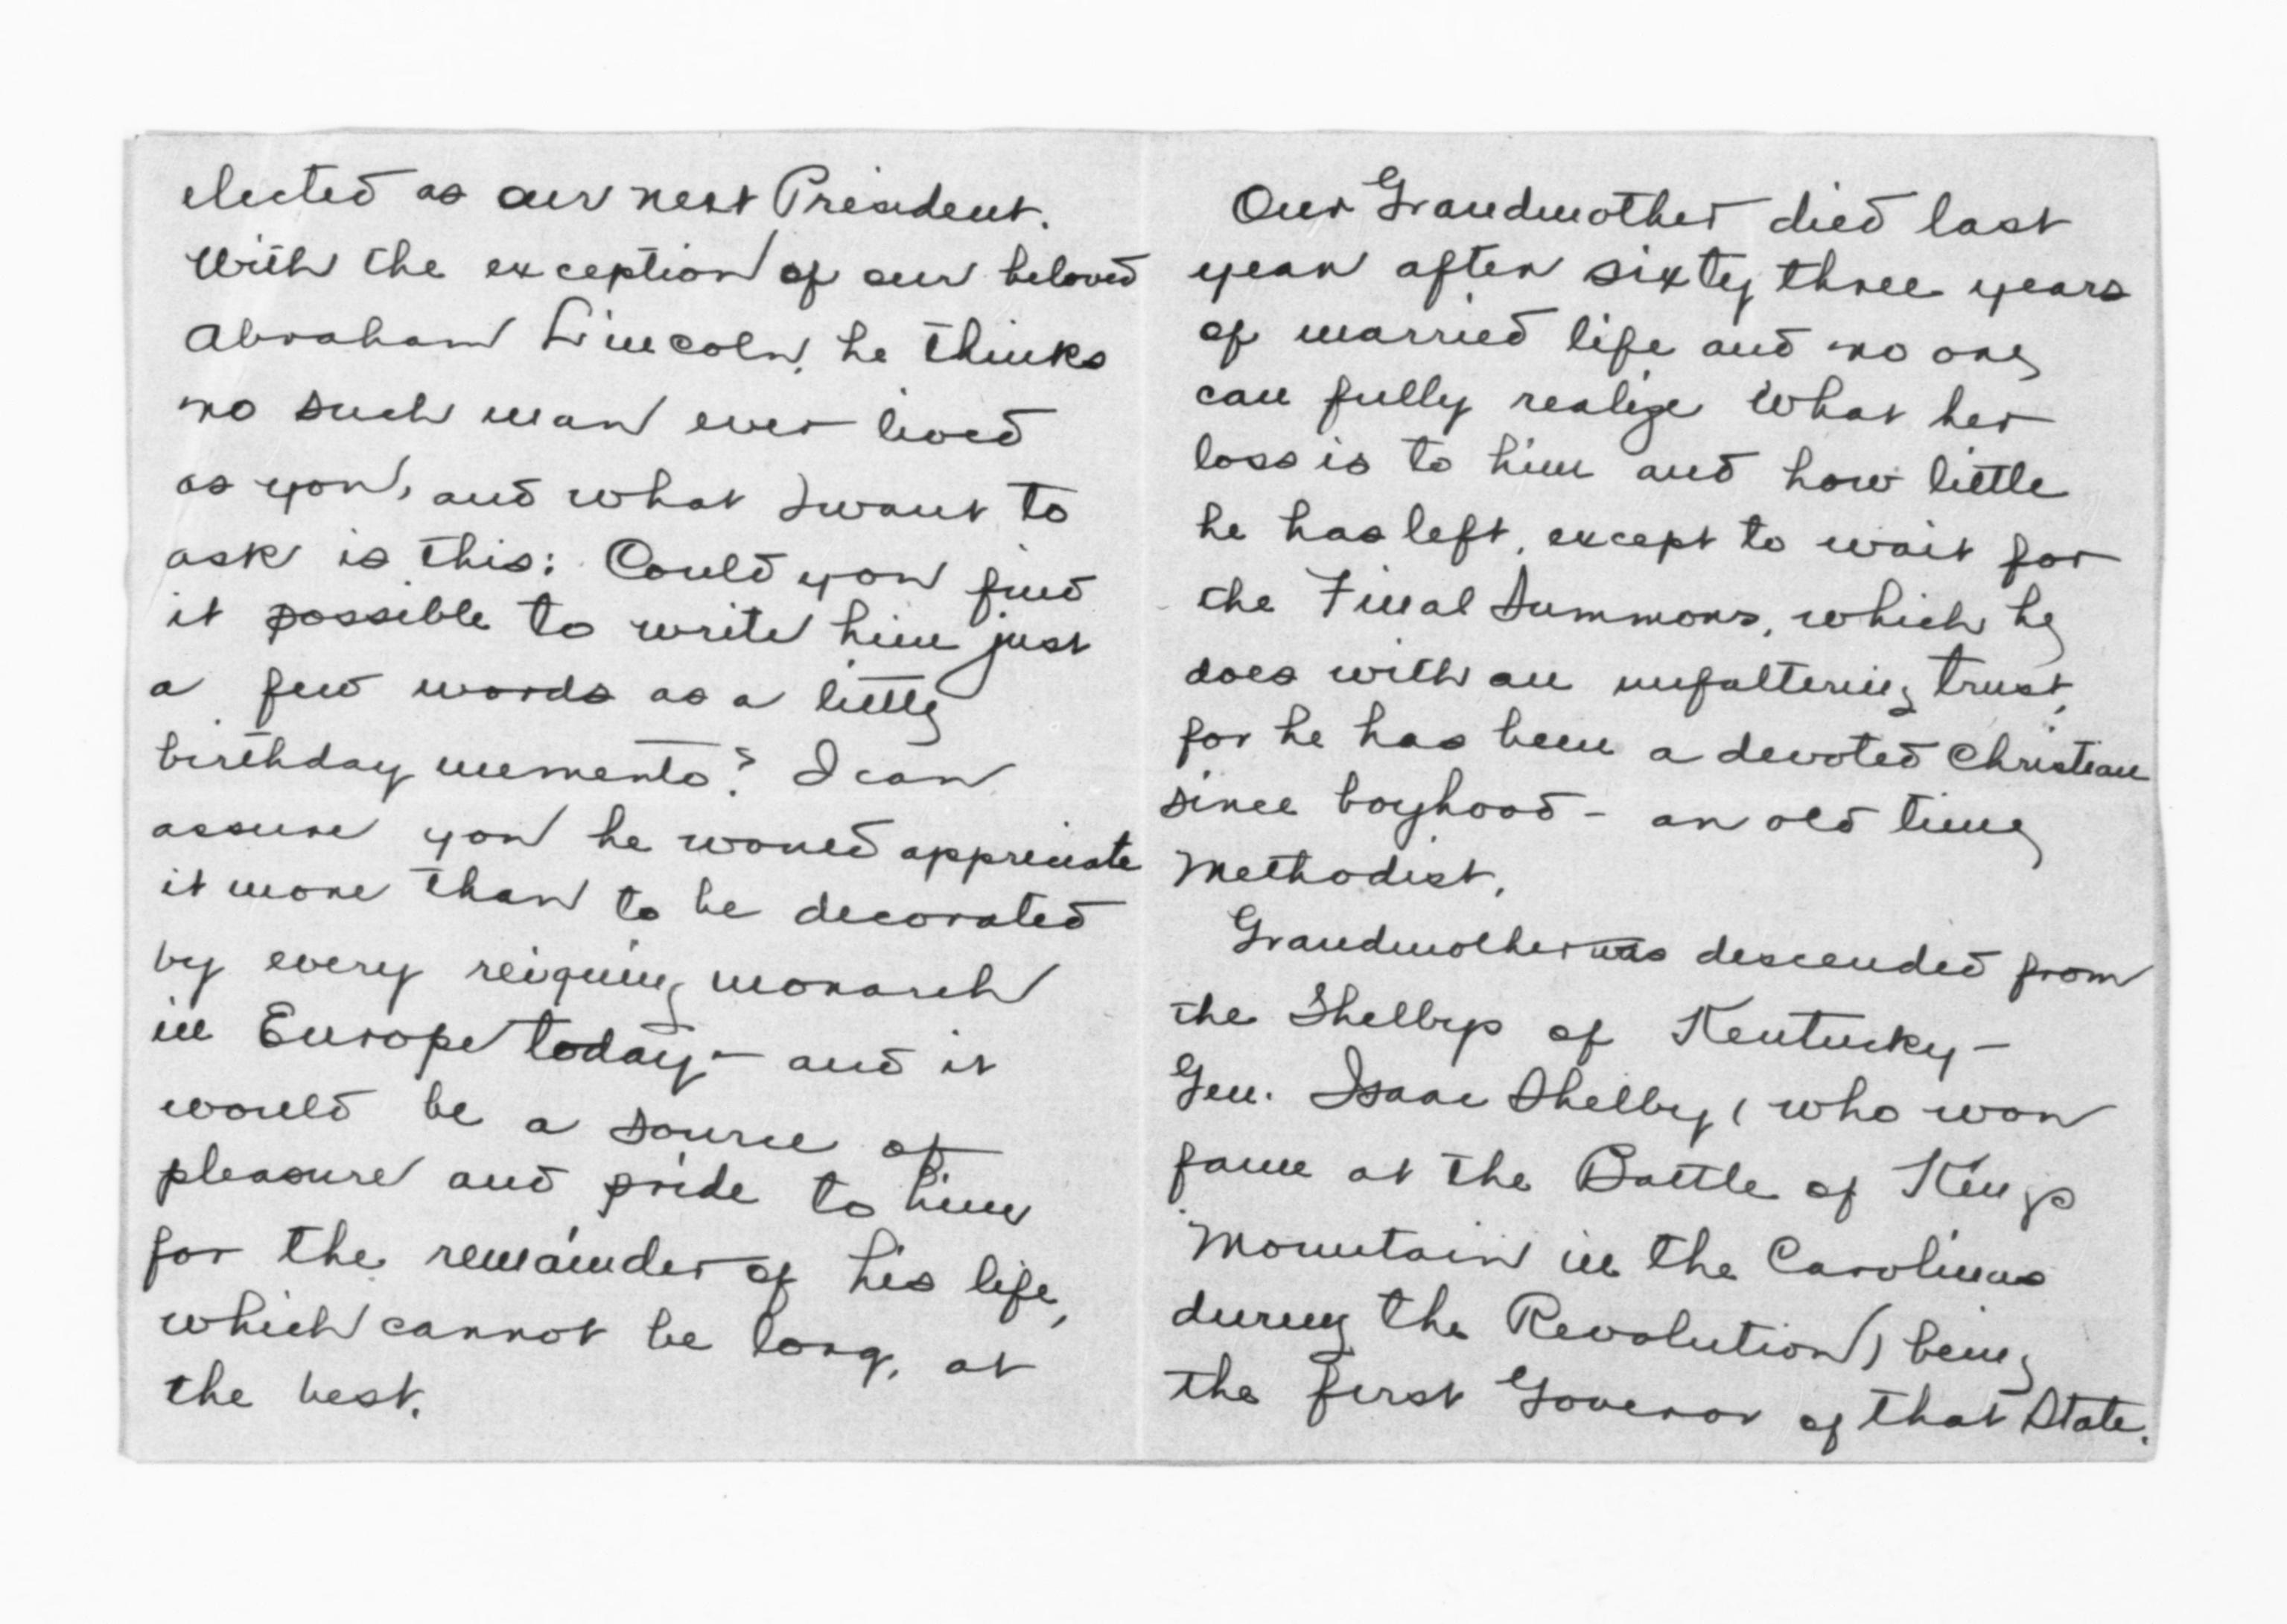 elected as our next President.
With the exception of our beloved
Abraham Lincoln, he thinks
no such man ever lived
as you, and what I want to
ask is this: Could you find
it possible to write him just
a few words as a little
birthday memento? I can
assure you he would appreciate
it more than to be decorated
by every reigning monarch
in Europe today - and it
would be a source of
pleasure and pride to him
for the remainder of his life,
which cannot be long, at
the best.
Our Grandmother died last
year after sixty three years
of married life and no one
can fully realize what her
loss is to him and how little
he has left, except to wait for
the Final Summons, which he
does with an unfaltering trust,
for he has been a devoted Christian
since boyhood - an old time
Methodist.
Grandmother was descended from
the Shelbys of Kentucky -
Gen. Isaac Shelby, (who won
fame at the Battle of Kings
Mountain in the Carolinas
during the Revolution) being
the first Govenor of that State.